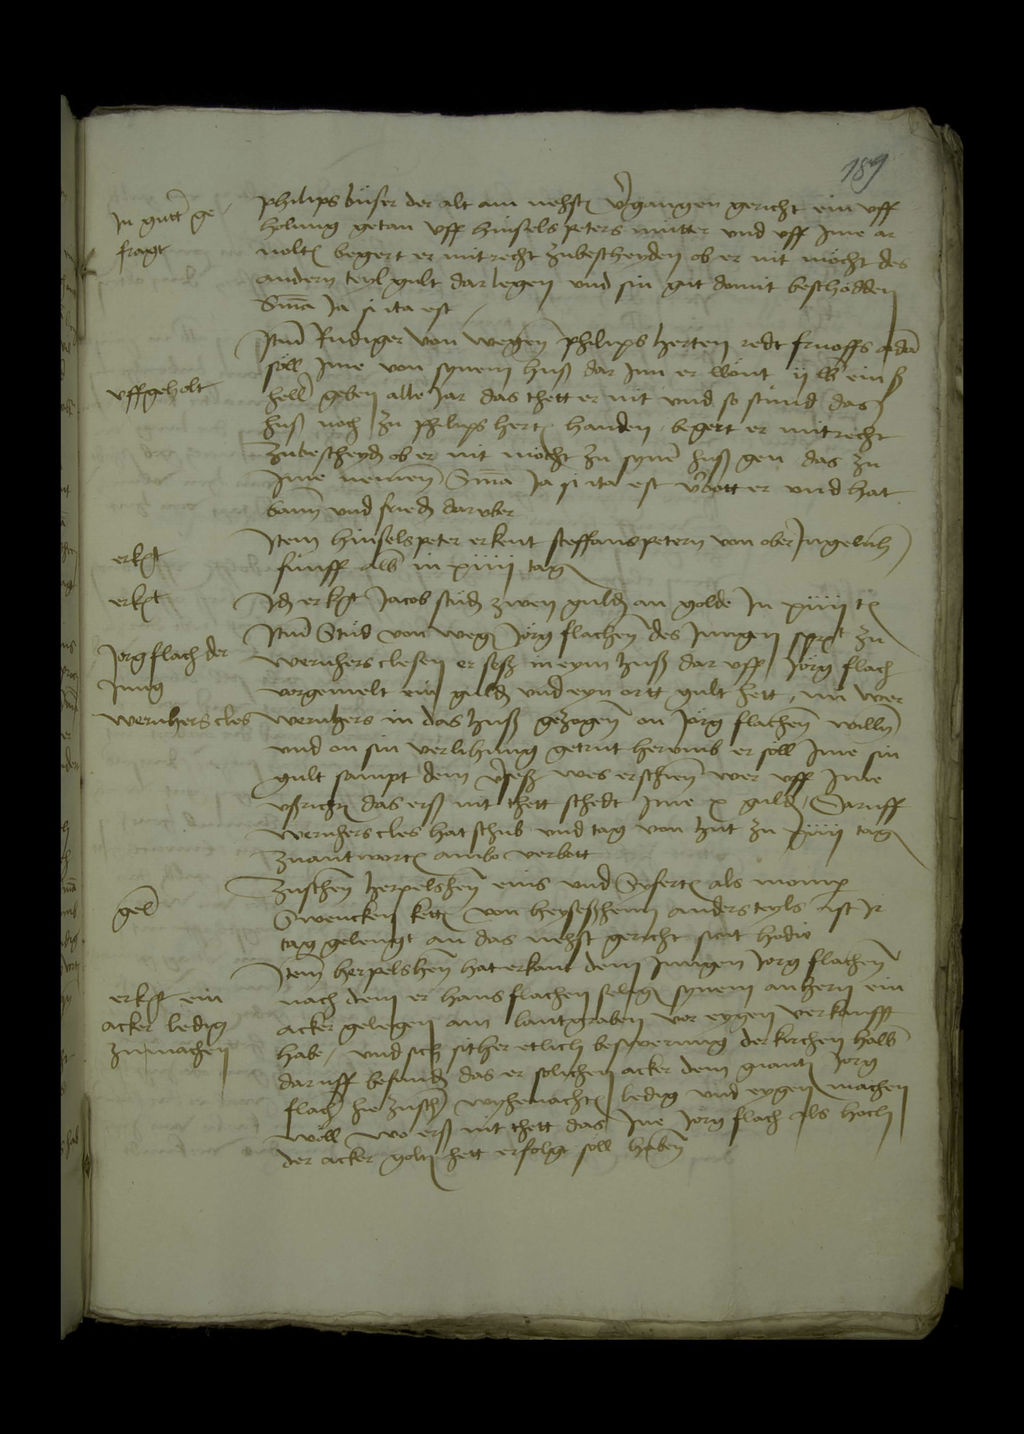 189
In gutt ge-
fragt
philips büser der alt am nehst v'gangen gericht ein uff
holung getan uff hinsels peters mutter und uff Ime er
nolt begert er mit recht zubescheyden ob er nit mocht des
andern teyl gult dar legen und sin gut domit beschodden
Sma Ja si ita est
Item Rudiger von wegen philips herten redt
söll Ime von synem huß dar Inn er wont ij lb ein ß
uffgeholt
hell' geben alle Jar das thett er nit und so stund das
huß noch zu philips hert handen begert er mit recht
zubescheyd ob er nit mocht zu syne' huß gen das zu
Ime nemen Sma Ja si ita est v'bott er und hat
bann und fried daruber
erkt
Item hinselspeter erkent steffanspetern von ober Ingelnh
funff alb in xiiij tag
erkt
Id erkt Jacob stud zwen guld an golde In xiiij t
Jorg flach der
Jung
wernhers cles
Item Stüd von weg Jorg flachen des Jungen spricht zu
wernhers clesen er seß in eym huß dar uff Jorg flach
vorgemelt ein guld und eyn ortt gult hett nu wer
wernhers in das huß gezogen on Jorg flachen willn
und on sin verlihung getrut herumb er söll Ime sin
gult sampt dem v'seß was erschien wer uff Ime
ußricht das erß nit thett schedt Ime x guld Daruff
wernhers cles hat schub und tag von hut zu xiiij tag
zuantwort ambo verbott
gel'
Zuschen herpelshen eins und Syfert als momp
Swencken kett von heyseßheim anderteyls ist Ir
tag gelengt an das nehst gericht sicut hodie
erkt ein
acker ledig
zumachen
Item herpelshen hat erkant dem Jungen Jorg flachen
nach dem er hans flachen selig synem anhern ein
acker gelegen am lantgraben vor eygen verkaufft
habe und sich sither etlich beswerung der kirchen halb
daruff befund das er solichen acker dem gnant Jorg
flach hie zusch wyhenacht ledig und eygen machen
wöll wo erß nit thett das Ine Jorg flach als hoch
der acker golt hett erfolgt soll haben